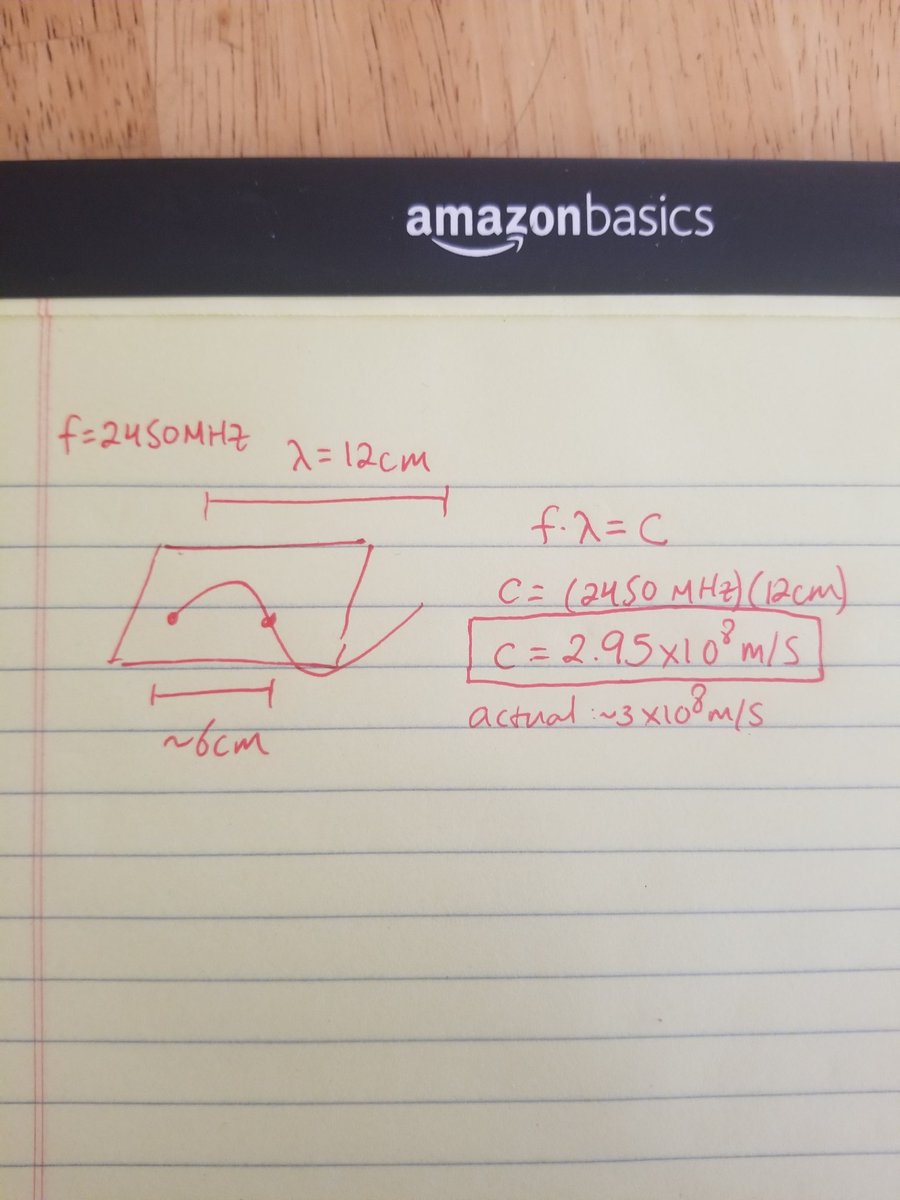 amazonbasics
f=2450MHZ
λ=12cm
f·λ=C
C=(2450 MHz)(12cm)
C=2.95x10⁸m/s
actual:~3x10⁸m/s
~6cm